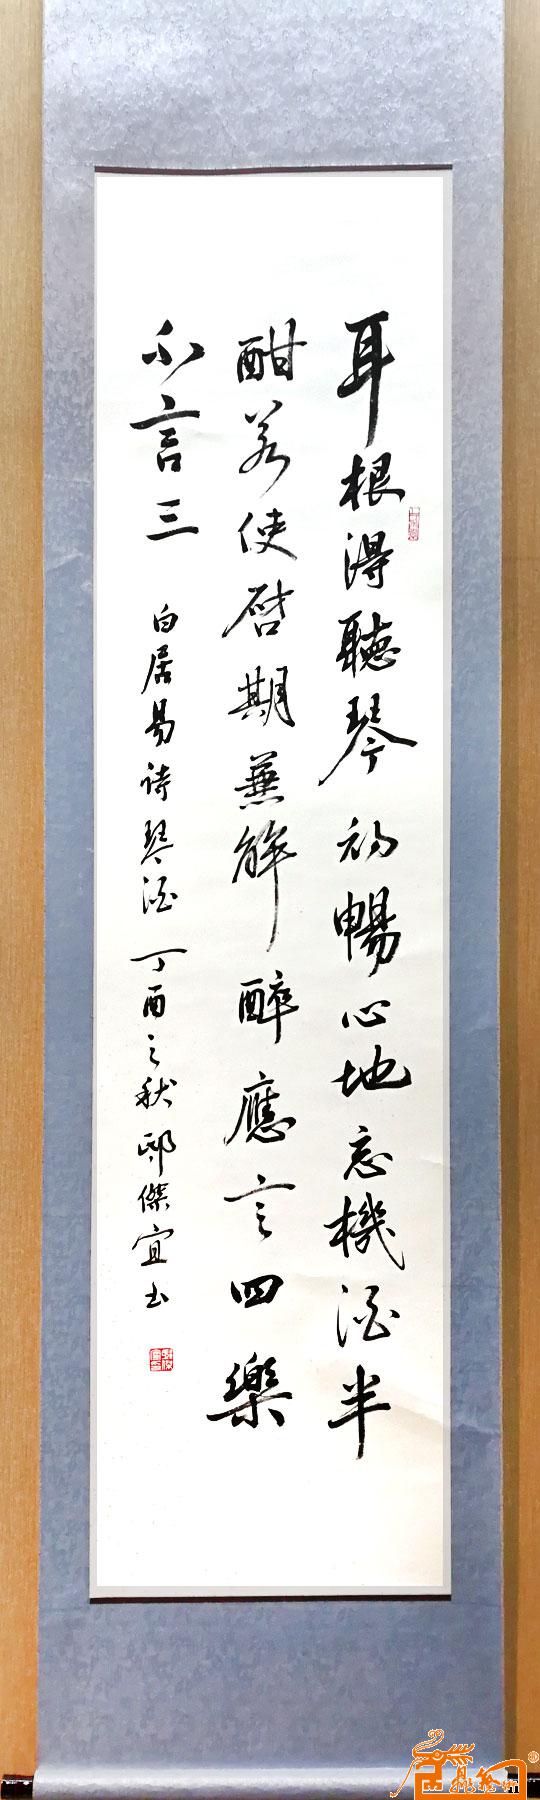 耳根得聽琴初暢心地忘機酒半
酣若使啓期兼解醉應言四樂
不言三
白居易詩琴酒丁酉之秋邸傑宜书